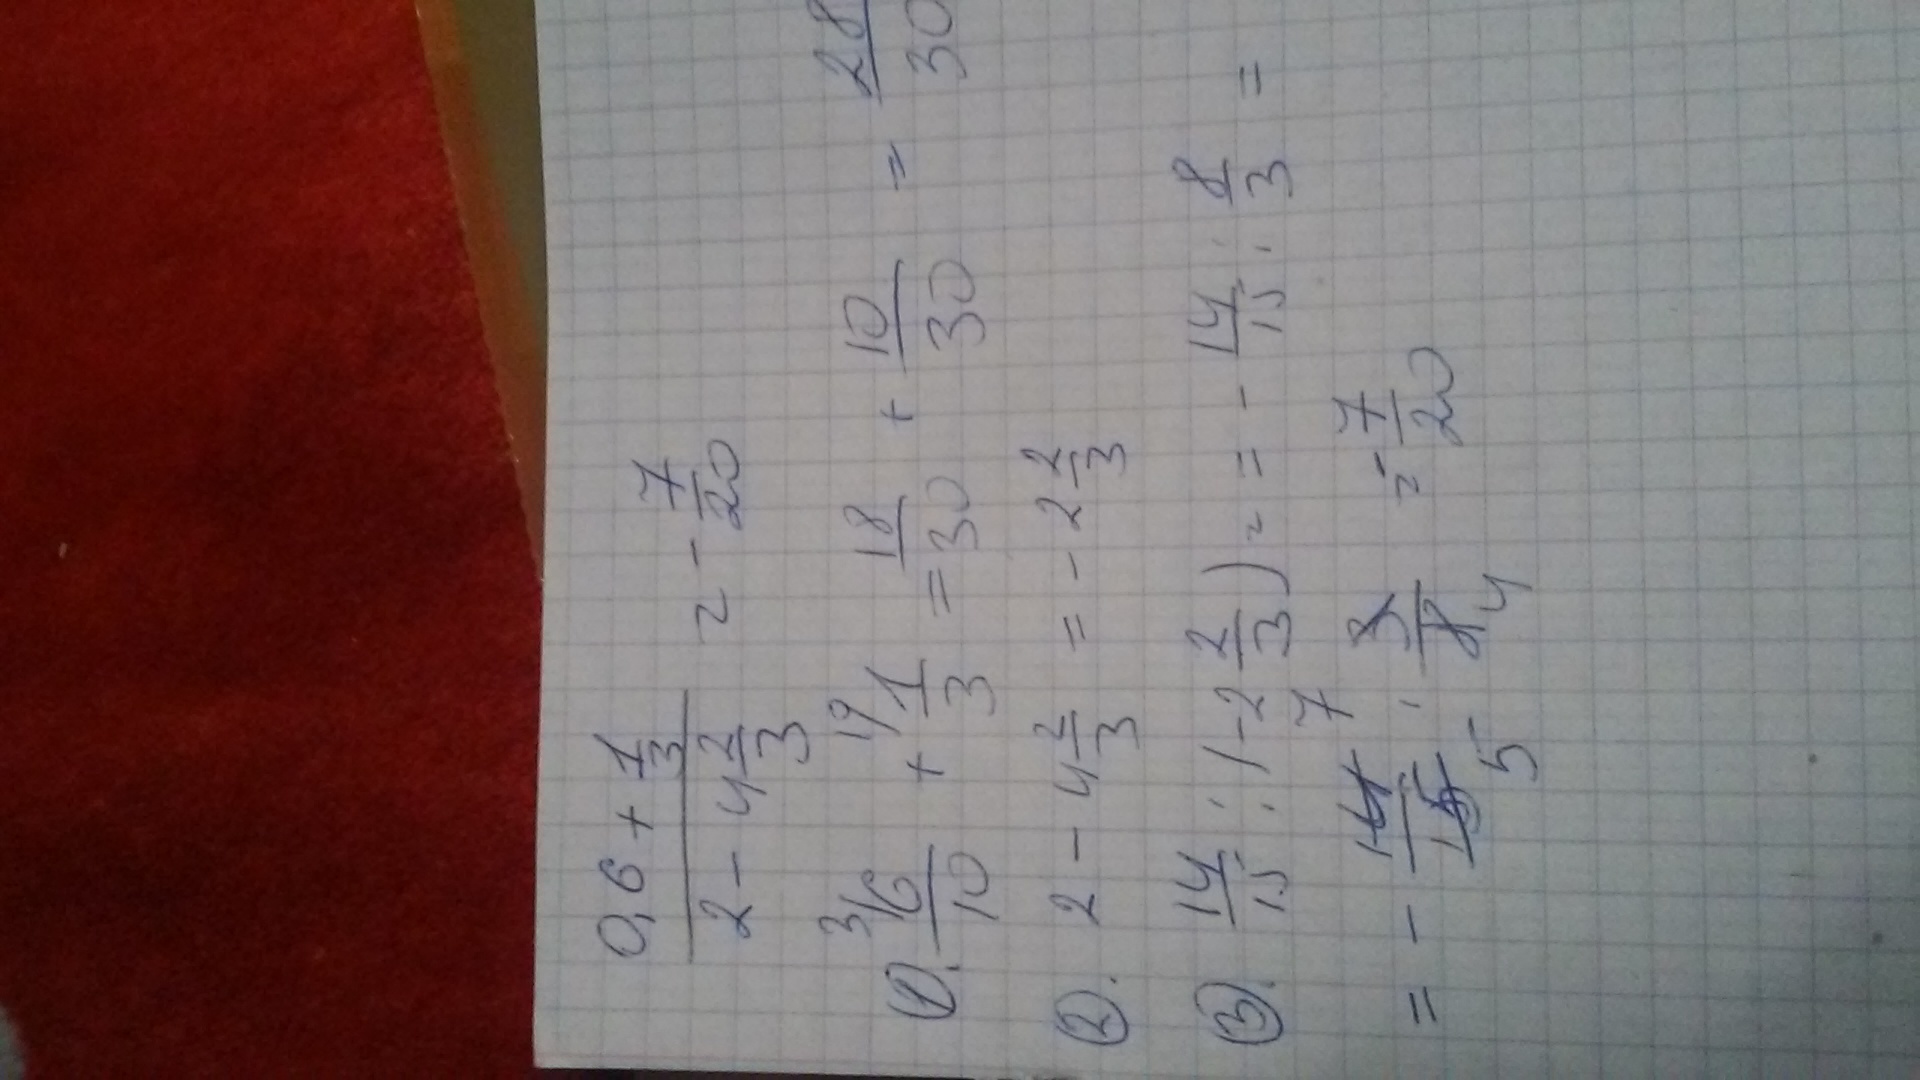 0,6 + 1/3 / 2 - 4 2/3 = - 7/20
1. 3/ 6/10 + 10/ 1/3 = 18/30 + 10/30 = 28/30
2. 2 - 4 2/3 = - 2 2/3
3. 14/15 : (- 2 2/3) = = - 14/15 : 8/3 =
= - 14/15 · 3/8 = - 7/20
7 5 4